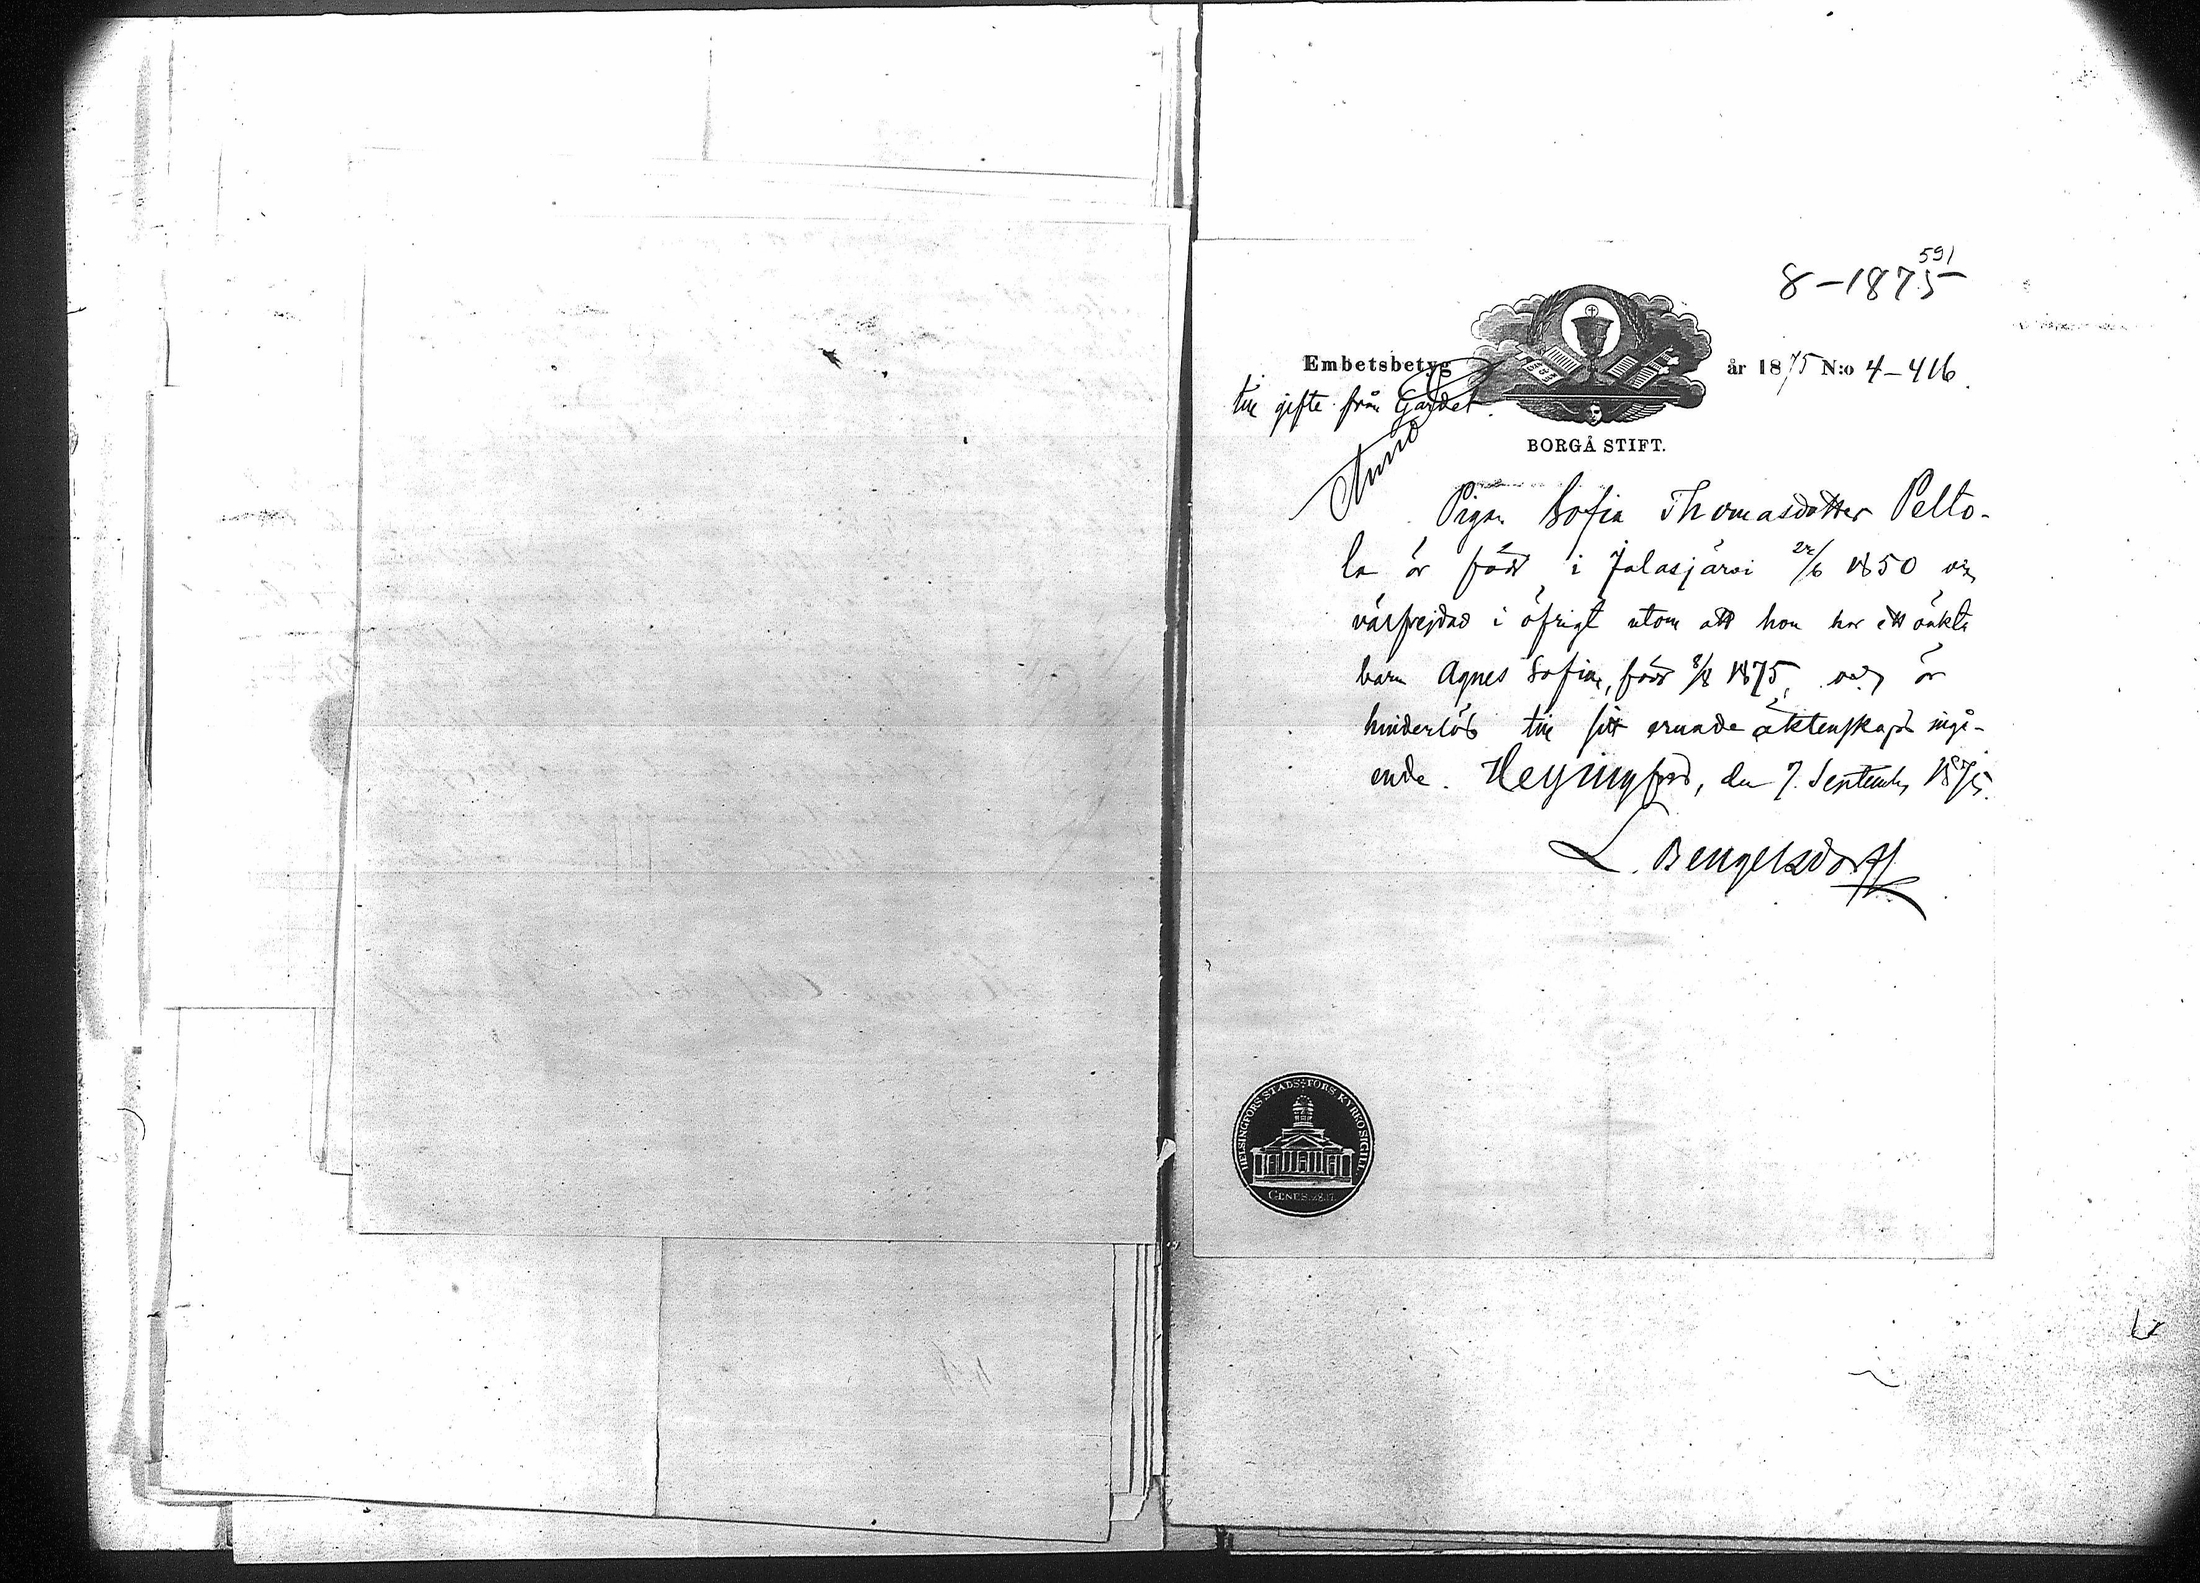 591
8-1875
Embetsbetyg år 1875 N:o 4-416.
till gifte från Gardet.
BORGÅ STIFT.
Pigan Sofia Thomasdotter Pelto-
la är född i Jalasjärvi 22/6 1850 och
välfrejdad i öfrigt utom att hon har ett oäkta
barn Agnes Sofia, född 8/8 1875, och är
hinderlös till sitt ernade äktenskaps ingå-
ende. Helsingfors, den 7. September 1875.
L. Bengelsdorff
HELSINGFORS STADS FÖRS. KYRKO SIGILL.
GENES. 28.17.